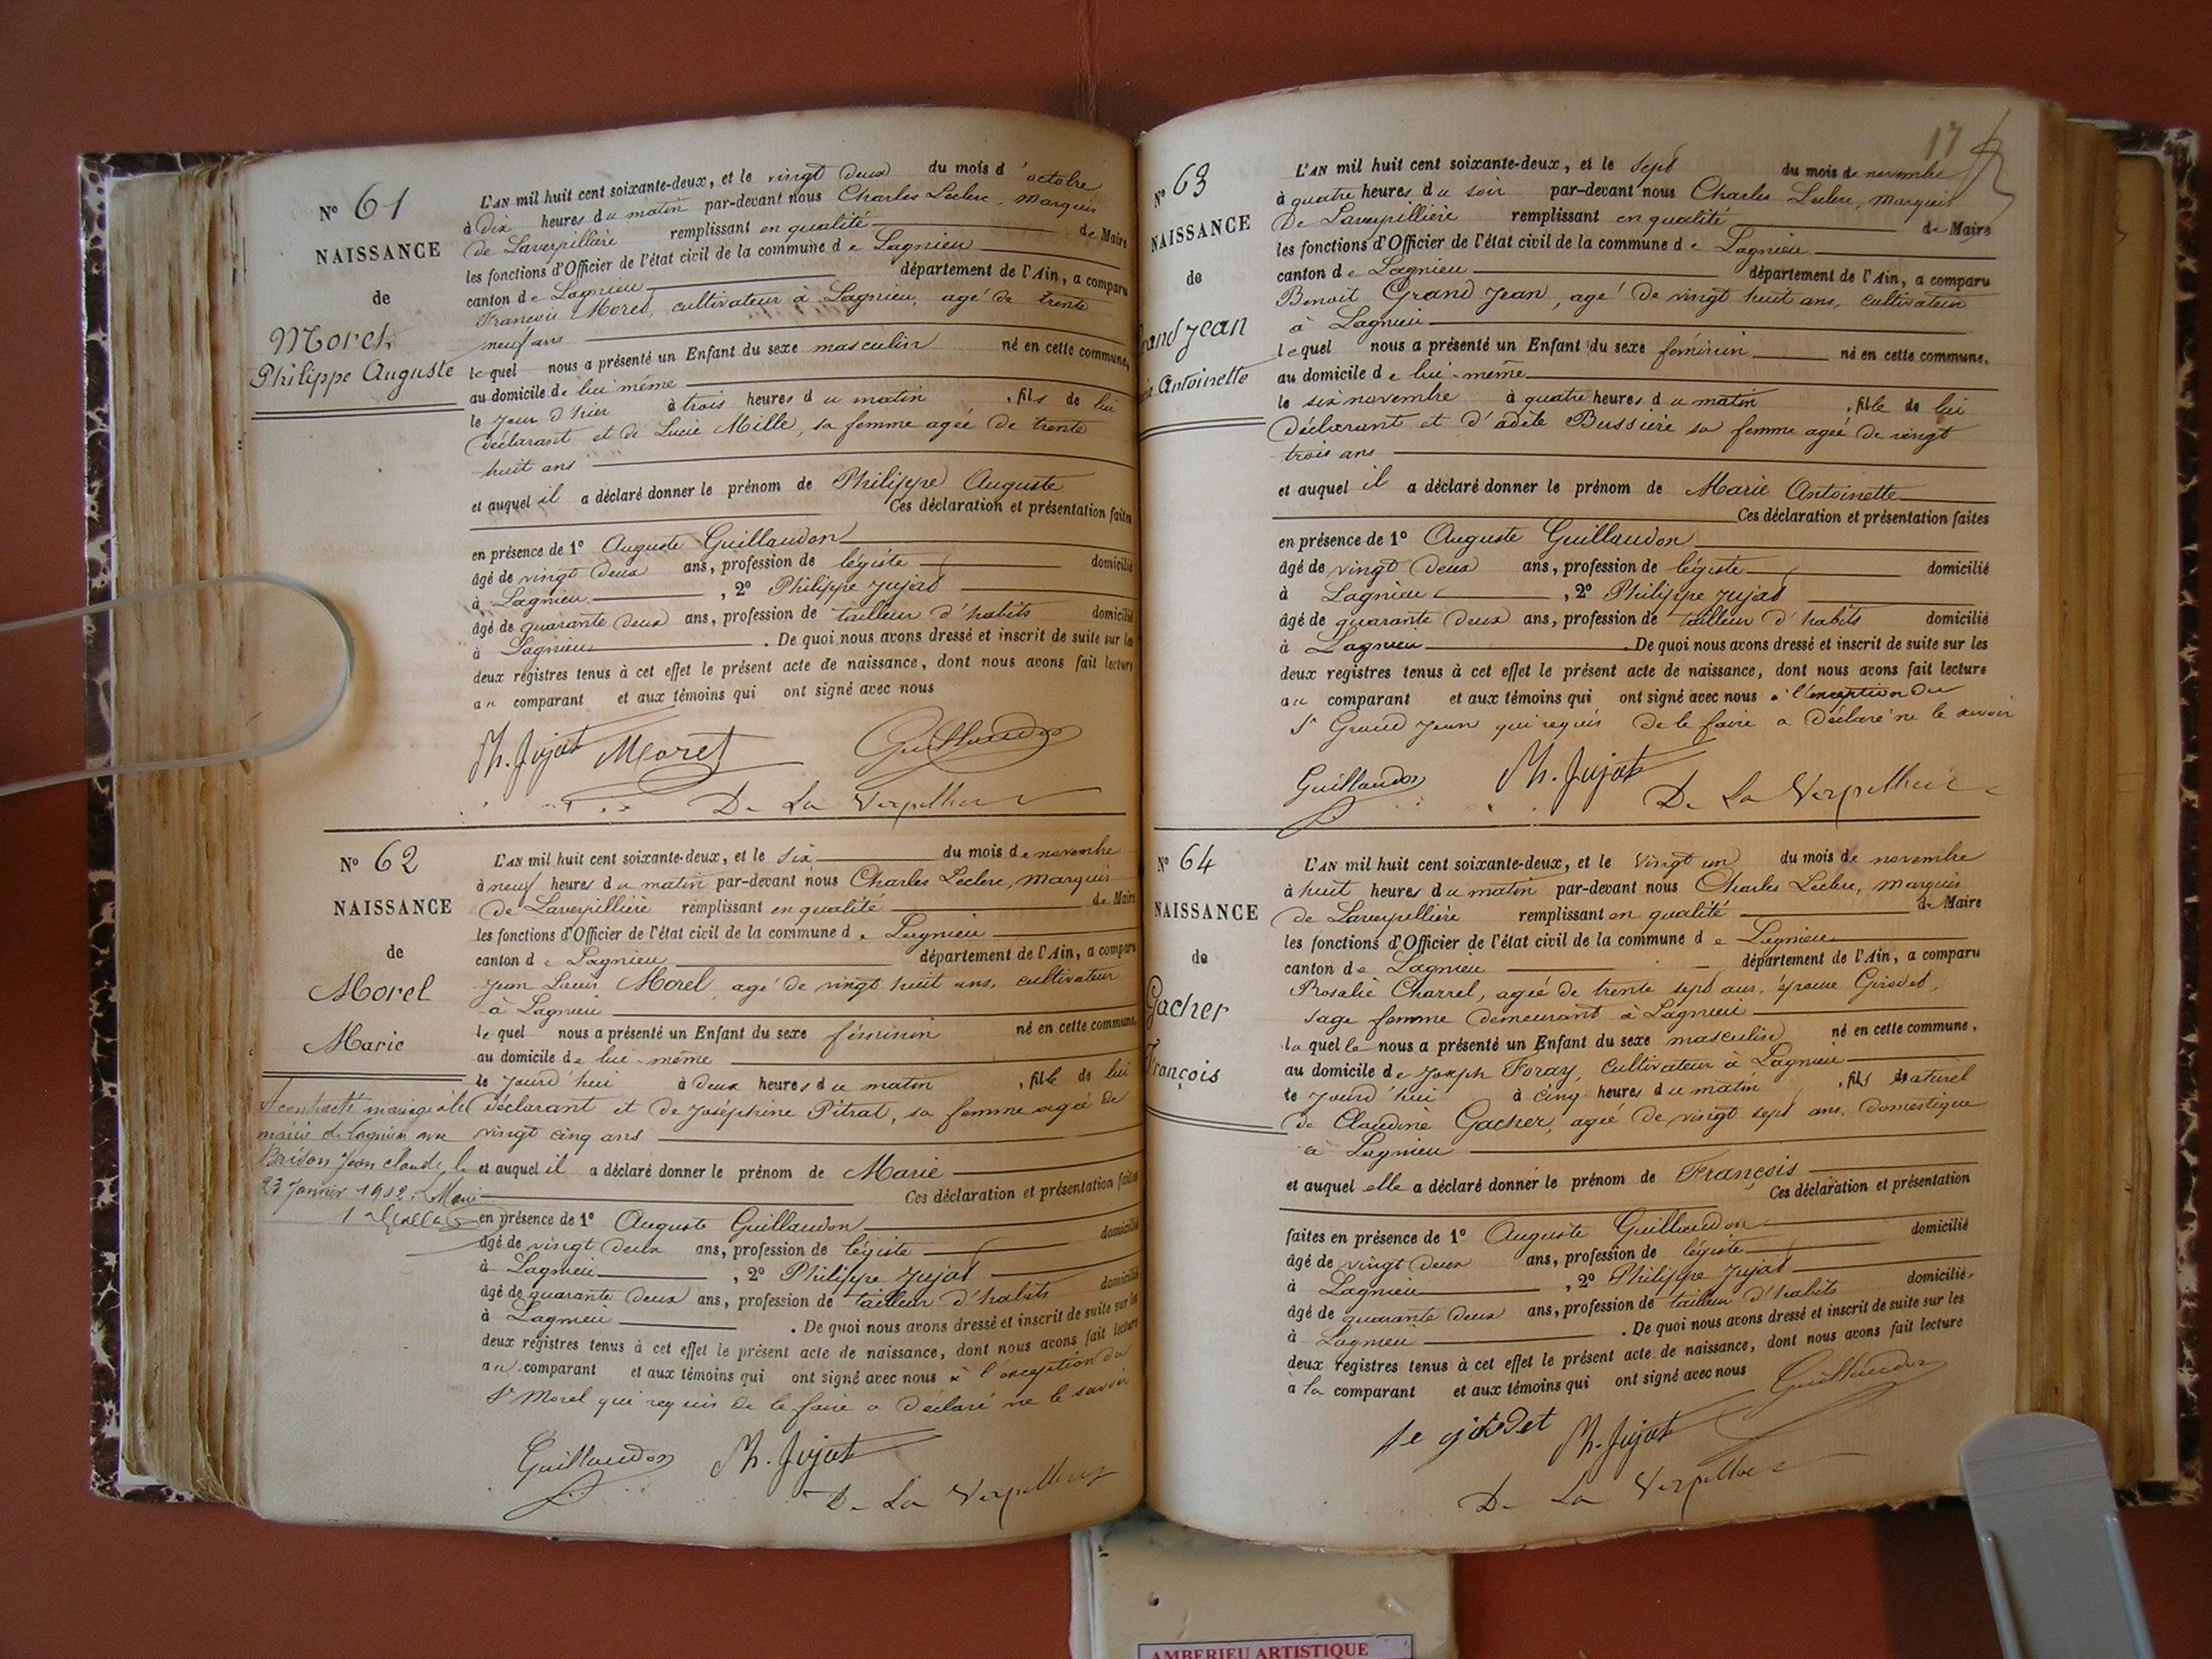 N° 61
NAISSANCE
de
Morel
Philippe Auguste
L'AN mil huit cent soixante-deux, et le vingt deux du mois d'octobre
à dix heures du matin par-devant nous Charles Leclerc, marquis
de Laverpillière remplissant en qualité de Maire
les fonctions d'Officier de l'état civil de la commune de Lagnieu
canton de Lagnieu département de l'Ain, a comparu
François Morel, cultivateur à Lagnieu, agé de trente
neuf ans
lequel nous a présenté un Enfant du sexe masculin né en cette commune,
au domicile de lui même
le jour d'hier à trois heures du matin, fils de lui
déclarant et de Lucie Mille, sa femme agée de trente
huit ans
et auquel il a déclaré donner le prénom de Philippe Auguste
Ces déclaration et présentation faites
en présence de 1° Auguste Guillaudon
âgé de vingt deux ans, profession de légiste domicilié
à Lagnieu, 2° Philippe Jujat
âgé de quarante deux ans, profession de tailleur d'habits domicilié
à Lagnieu. De quoi nous avons dressé et inscrit de suite sur les
deux registres tenus à cet effet le présent acte de naissance, dont nous avons fait lecture
au comparant et aux témoins qui ont signé avec nous
Ph. Jujat Morel Guillaudon
De La Verpilliere
N° 62
NAISSANCE
de
Morel
Marie
A contracté mariage à la
mairie de Lagnieu avec
Brison Jean claude, le
23 Janvier 1912. Le Maire
L'AN mil huit cent soixante-deux, et le six du mois de novembre
à neuf heures du matin par-devant nous Charles Leclerc, marquis
de Laverpillière remplissant en qualité de Maire
les fonctions d'Officier de l'état civil de la commune de Lagnieu
canton de Lagnieu département de l'Ain, a comparu
Jean Louis Morel, agé de vingt huit ans, cultivateur
à Lagnieu
lequel nous a présenté un Enfant du sexe féminin né en cette commune,
au domicile de lui-même
le jourd'hui à deux heures du matin, fille de lui
déclarant et de Joséphine Pitrat, sa femme agée de
vingt cinq ans
et auquel il a déclaré donner le prénom de Marie
Ces déclaration et présentation faites
en présence de 1° Auguste Guillaudon
âgé de vingt deux ans, profession de légiste domicilié
à Lagnieu, 2° Philippe Jujat
âgé de quarante deux ans, profession de tailleur d'habits domicilié
à Lagnieu. De quoi nous avons dressé et inscrit de suite sur les
deux registres tenus à cet effet le présent acte de naissance, dont nous avons fait lecture
au comparant et aux témoins qui ont signé avec nous à l'exception du
Sr Morel qui requis de le faire a déclaré ne le savoir
Guillaudon Ph. Jujat
De La Verpilliere
17
N° 63
NAISSANCE
de
rand Jean
Antoinette
L'AN mil huit cent soixante-deux, et le sept du mois de novembre
à quatre heures du soir par-devant nous Charles Leclerc, marquis
de Laverpillière remplissant en qualité de Maire
les fonctions d'Officier de l'état civil de la commune de Lagnieu
canton de Lagnieu département de l'Ain, a comparu
Benoit Grand Jean, agé de vingt huit ans, cultivateur
à Lagnieu
lequel nous a présenté un Enfant du sexe féminin né en cette commune,
au domicile de lui-même
le six novembre à quatre heures du matin, fille de lui
déclarant et d'adèle Bussière sa femme agée de vingt
trois ans
et auquel il a déclaré donner le prénom de Marie Antoinette
Ces déclaration et présentation faites
en présence de 1° Auguste Guillaudon
âgé de vingt deux ans, profession de légiste domicilié
à Lagnieu, 2° Philippe Jujat
âgé de quarante deux ans, profession de tailleur d'habits domicilié
à Lagnieu. De quoi nous avons dressé et inscrit de suite sur les
deux registres tenus à cet effet le présent acte de naissance, dont nous avons fait lecture
au comparant et aux témoins qui ont signé avec nous à l'exception du
Sr Grand Jean qui requis de le faire a déclaré ne le savoir
Guillaudon Ph. Jujat De La Verpilliere
N° 64
NAISSANCE
de
Gacher
François
L'AN mil huit cent soixante-deux, et le vingt un du mois de novembre
à huit heures du matin par-devant nous Charles Leclerc, marquis
de Laverpillière remplissant en qualité de Maire
les fonctions d'Officier de l'état civil de la commune de Lagnieu
canton de Lagnieu département de l'Ain, a comparu
Rosalie Charrel, agée de trente sept ans, épouse Girodet,
sage femme demeurant à Lagnieu
laquelle nous a présenté un Enfant du sexe masculin né en cette commune,
au domicile de Joseph Foray, Cultivateur à Lagnieu
le jourd'hui à cinq heures du matin, fils naturel
de Claudine Gacher, agée de vingt sept ans, domestique
à Lagnieu
et auquel elle a déclaré donner le prénom de François
Ces déclaration et présentation
faites en présence de 1° Auguste Guillaudon domicilié
âgé de vingt deux ans, profession de légiste
à Lagnieu, 2° Philippe Jujat
âgé de quarante deux ans, profession de tailleur d'habits domicilié
à Lagnieu. De quoi nous avons dressé et inscrit de suite sur les
deux registres tenus à cet effet le présent acte de naissance, dont nous avons fait lecture
à la comparant et aux témoins qui ont signé avec nous Guillaudon
fe girodet Ph. Jujat
De La Verpilliere
AMBERIEU ARTISTIQUE